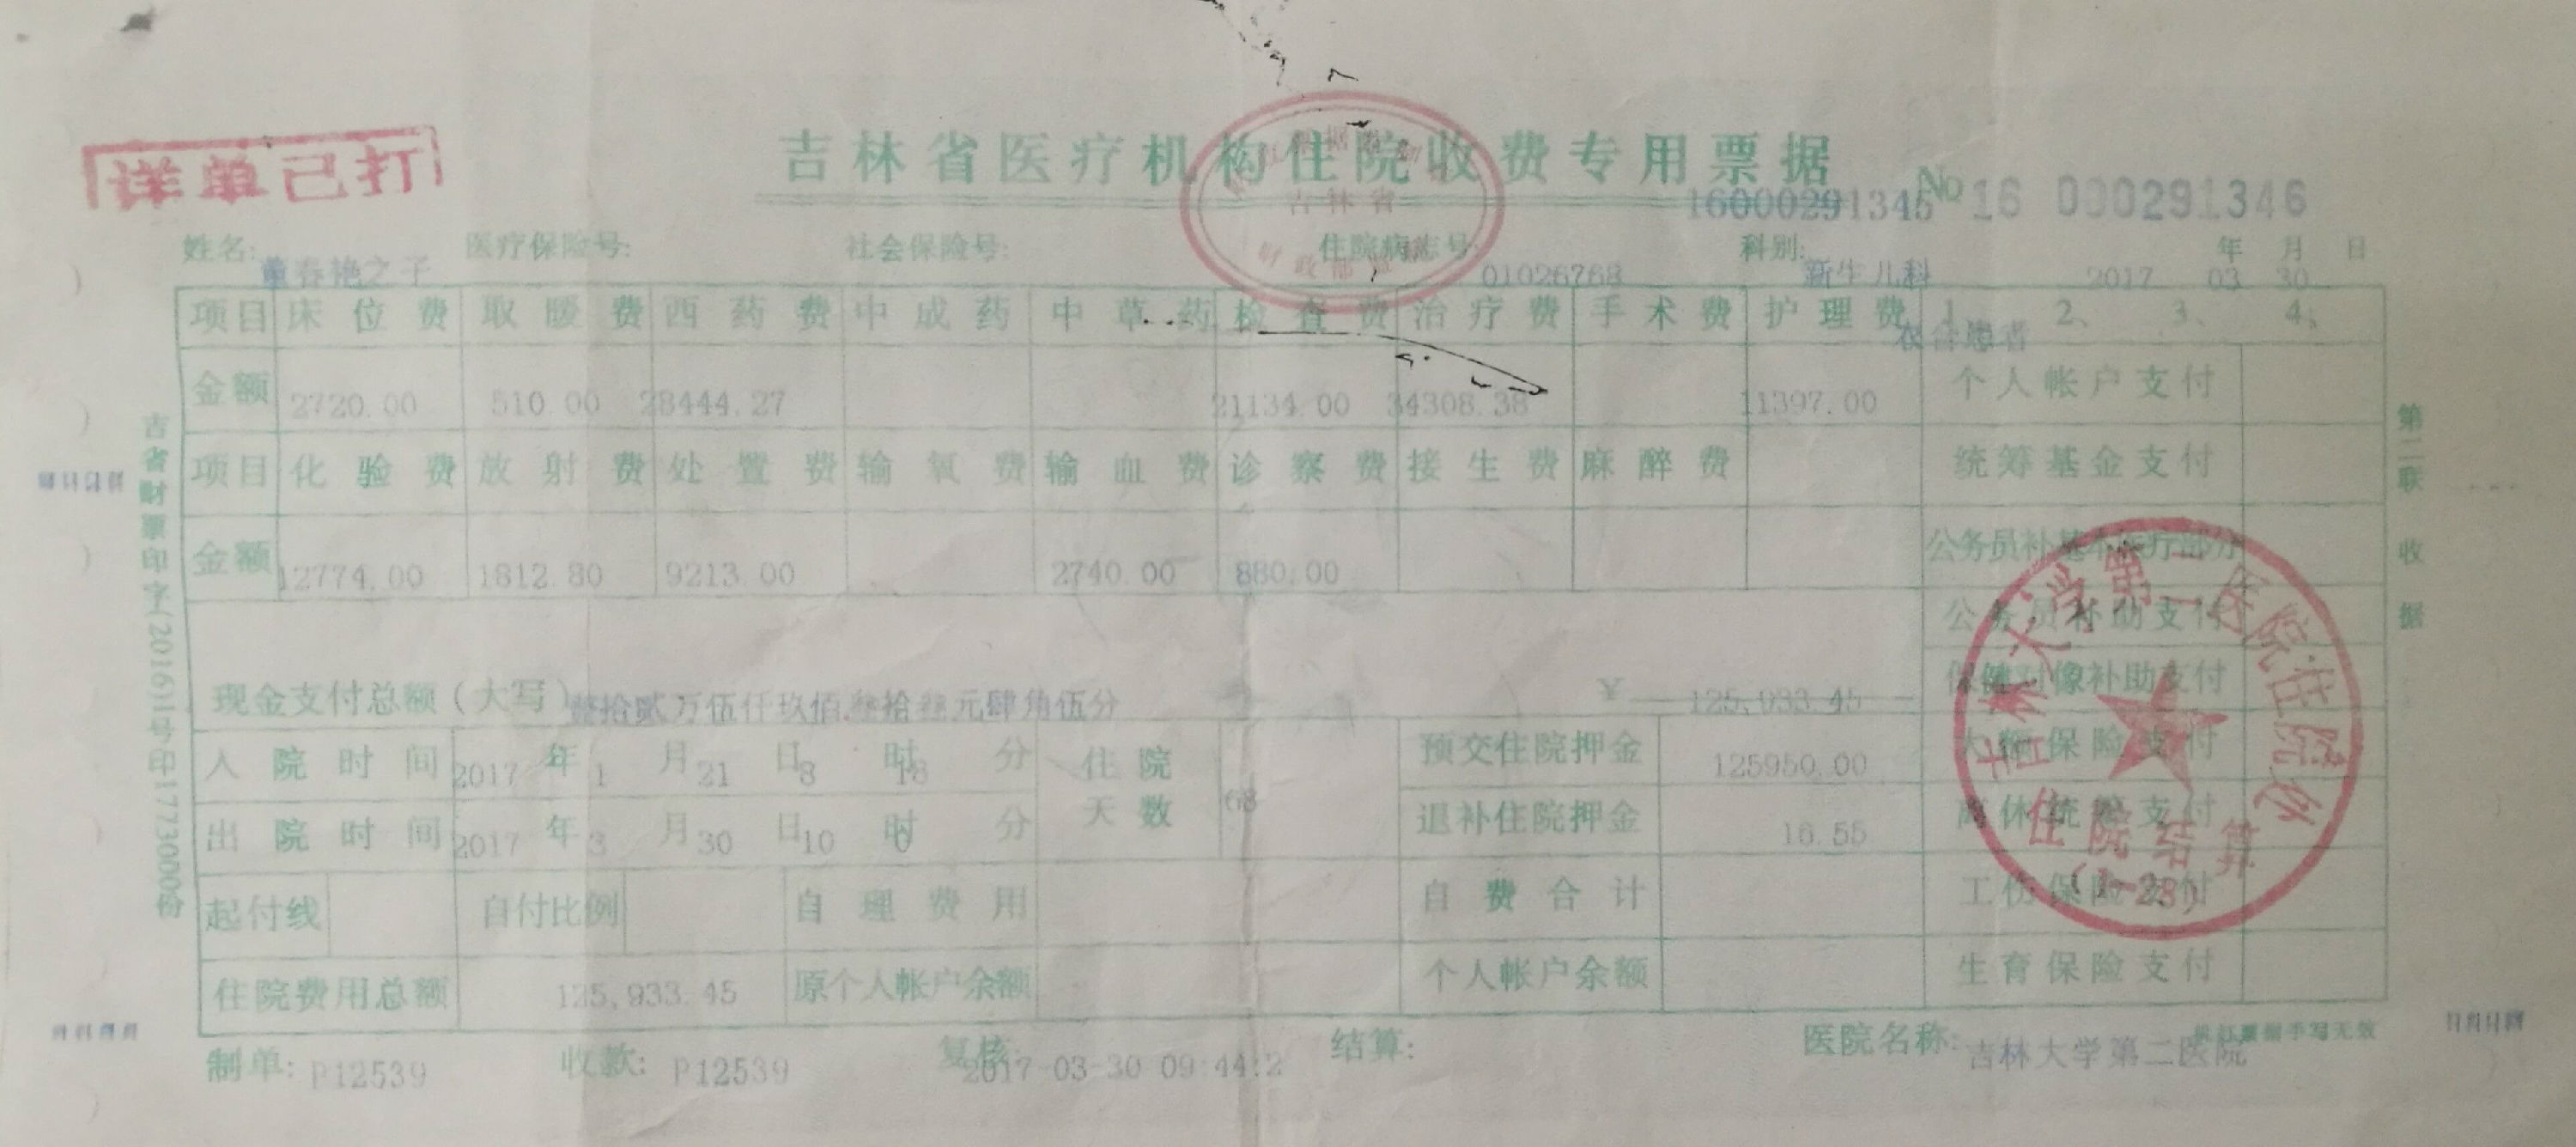 详单已打
吉林省医疗机构住院收费专用票据
吉林省
16000291345 No 16 000291346
姓名: 董春艳之子 医疗保险号: 社会保险号: 住院病志号: 01026768 科别: 新生儿科 2017年03月30日
项目 床位费 取暖费 西药费 中成药 中草药 检查费 治疗费 手术费 护理费 1、 2、 3、 4、
农合患者
金额 2720.00 510.00 28444.27 21134.00 34308.38 11397.00 个人帐户支付
项目 化验费 放射费 处置费 输氧费 输血费 诊察费 接生费 麻醉费 统筹基金支付
金额 12774.00 1812.80 9213.00 2740.00 880.00 公务员补基本医疗部分
公务员补助支付
现金支付总额(大写) 壹拾贰万伍仟玖佰叁拾叁元肆角伍分 ¥ 125,933.45 保健对像补助支付
入院时间 2017年1月21日8时18分 住院天数 68 预交住院押金 125950.00 大额保险支付
出院时间 2017年3月30日10时0分 退补住院押金 16.55 离休统筹支付
起付线 自付比例 自理费用 自费合计 工伤保险支付
住院费用总额 125,933.45 原个人帐户余额 个人帐户余额 生育保险支付
制单: P12539 收款: P12539 复核: 2017-03-30 09:44:2 结算: 医院名称: 吉林大学第二医院
手写无效
吉省财票印字(2016)二号印1773000份
第二联 收据
吉林大学第二医院住院处
住院结算
(1-28)